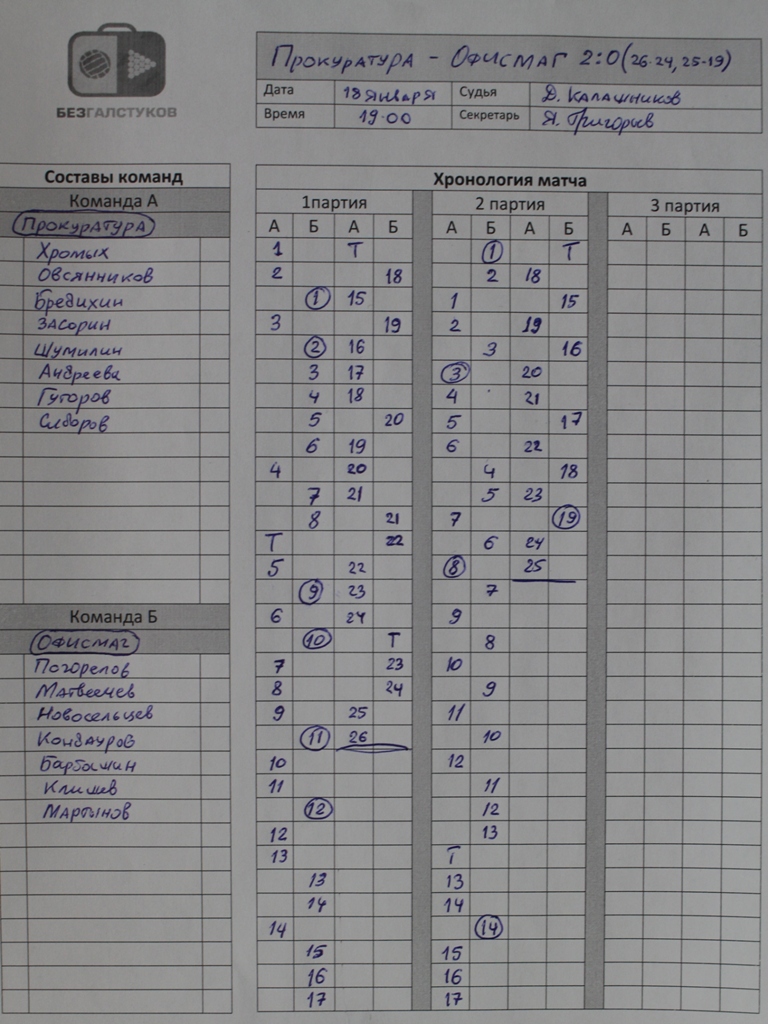 БЕЗГАЛСТУКОВ
Прокуратура - Офисмаг 2:0 (26-24, 25-19)
Дата 18 января Судья Д. Калашников
Время 19-00 Секретарь Я. Григорьев
Составы команд
Команда А
Прокуратура
Хромых
Овсянников
Бредихин
Засорин
Шумилин
Андреева
Гугоров
Команда Б
Офисмаг
Погорелов
Матвеенчев
Новосельцев
Кондауров
Барбашин
Климев
Мартынов
Хронология матча
1партия 2 партия 3 партия
А Б А Б А Б А Б А Б А Б
1 Т 1 Т
2 18 2 18
1 15 1 15
3 19 2 19
2 16 3 16
3 17 3 20
4 18 4 21
5 20 5 17
6 19 6 22
4 20 4 18
7 21 5 23
8 21 7 19
Т 22 6 24
5 22 8 25
9 23 7
6 24 9
10 Т 8
7 23 10
8 24 9
9 25 11
11 26 10
10 12
11 11
12 12
12 13
13 Т
13 13
14 14
14 14
15 15
16 16
17 17